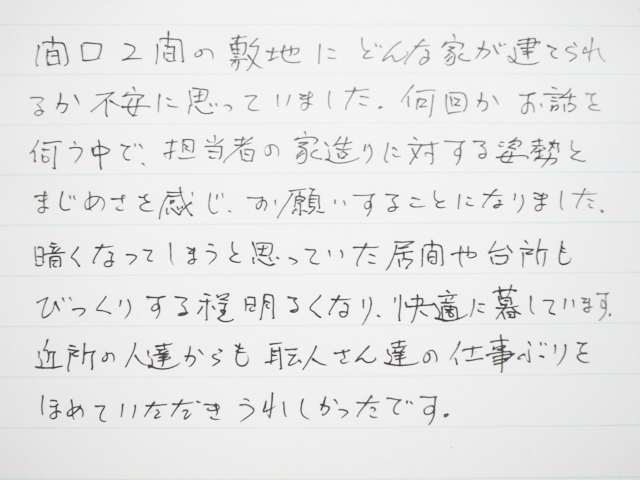 間口2間の敷地にどんな家が建てられ
るか不安に思っていました。何回かお話を
伺う中で、担当者の家造りに対する姿勢と
まじめさを感じ、お願いすることになりました。
暗くなってしまうと思っていた居間や台所も
びっくりする程明るくなり、快適に暮しています。
近所の人達からも職人さん達の仕事ぶりを
ほめていただきうれしかったです。